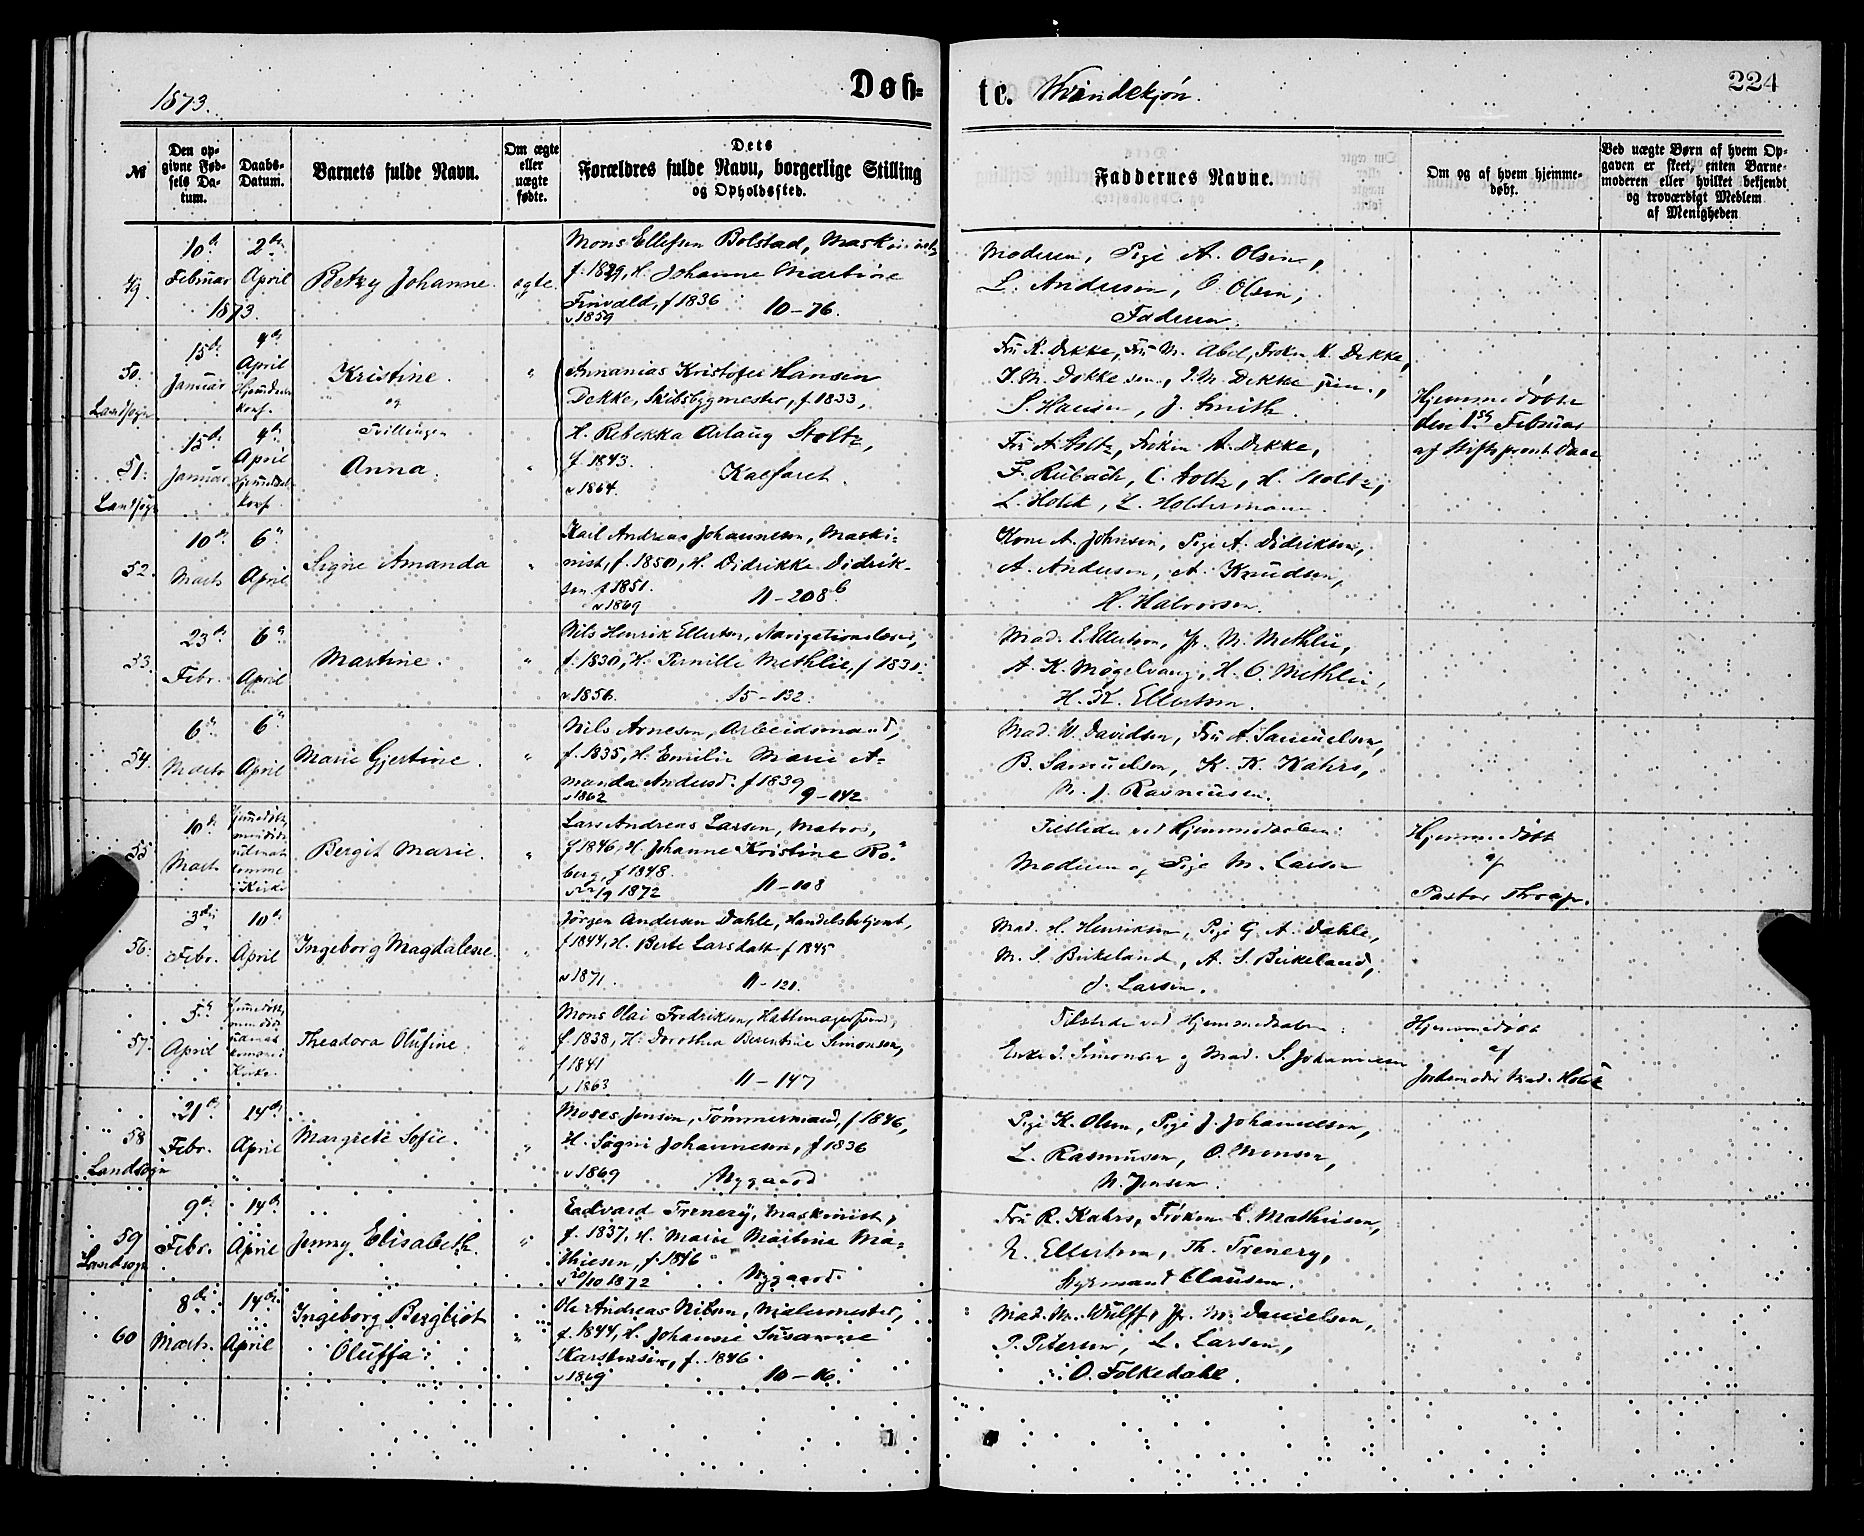 1873.
Døb-
te. Kvindekjøn.
224
№
Den op-
givne Fød-
sels Da-
tum.
Daabs-
Datum.
Barnets fulde Navn.
Om ægte
eller
uægte
fødte.
Dets
Forældres fulde Navn, borgerlige Stilling
og Opholdssted.
Faddernes Navne.
Om og af hvem hjemme-
døbt.
Ved uægte Børn af hvem Op-
gaven er skeet, enten Barne-
moderen eller hvilket bekjendt
og troværdigt Medlem
af Menigheden
49.
10de Februar 1873.
2den April
Betzy Johanne.
ægte.
Mons Ellefsen Bolstad, Maskinist,
f. 1829, H. Johanne Martine
f 1836
v 1859 10-76.
Moderen, Pige A. Olsen,
L. Andersen, O. Olsen,
Faderen.
50.
Landsogn
15de Januar
4de April
Kristine.
og
"
Annanias Kristofer Hansen
Dekke, Skibsbygmester, f. 1833,
Fru K. Dekke, Fru M. Abel, Frøken K. Dekke,
J. M. Dekke sen., J. M. Dekke jun.,
S. Hansen, J. Smith.
Hjemmedøbte
den 1ste Februar
af Stiftsprovst Daae
51.
Landsogn
15de Januar
4de April
Tvillinger
Anna.
"
H. Rebekka Aslaug Stoltz,
f. 1843.
v 1864. Kalfaret.
Fru A. Stoltz, Frøken A. Dekke,
F. Rubach, C. Stoltz, H. Stoltz,
L. Holck, L. Holtermann.
52.
10de Marts
6te April
Signe Amanda
"
Karl Andreas Johannesen, Maski-
nist, f. 1850, H. Didrikke Didrik-
sen f 1851.
v 1869 11-208b
Kone A. Johnsen, Pige A. Didriksen,
A. Andersen, A. Knudsen,
H. Halvorsen.
53.
23de Febr.
6te April
Martine.
"
Nils Henrik Ellertsen, Navigationslærer,
f. 1830, H. Pernille Methlie, f 1831.
v 1856. 15-132.
Mad. E. Ellertsen, Jfr. M. Methlie,
A. K. Møgelvang, H. O. Methlie,
H. K. Ellertsen.
54.
6te Marts
6te April
Marie Gjertine.
"
Nils Arnesen, Arbeidsmand,
f. 1835, H. Emilie Marie A-
manda Andersd. f 1839
v 1862 9-142
Mad. W. Davidsen, Fru A. Samuelsen,
B. Samuelsen, K. K. Kahrs,
N. J. Rasmussen.
55.
10de Marts
Bergit Marie.
"
Lars Andreas Larsen, Matros,
f 1846, H. Johanne Kristine Ro-
berg, f 1848.
1872 11-108
Tilstede ved Hjemmedaaben:
Moderen og Pige M. Larsen
Hjemmedøbt
af
Pastor Thrap.
56.
3die Febr.
10de April
Ingeborg Magdalene.
"
Jørgen Andersen Dahle, Handelsbetjent,
f 1844, H. Berte Larsdatt f 1845
v 1871. 11-121.
Mad. H. Henriksen, Pige G. A. Dahle,
M. S. Birkeland, A. S. Birkeland,
J. Larsen.
57.
5te April
Theadora Olufine.
"
Mons Olai Fredriksen, Hattemagersvend,
f. 1838, H. Dorothea Berentine Simonsen,
f 1841
v 1863 11-147
Tilstede ved Hjemmedaaben:
Enke S. Simonsen og Mad. S. Johannesen
Hjemmedøbt
af
Jordemoder Mad. Holck
58
Landsogn
21de Febr.
14de April
Margrete Sofie.
"
Moses Jensen, Tømmermand, f 1846,
H. Søgni Johannesen, f 1836
v 1869 Nygaard
Pige K. Olsen, Pige J. Johannesen,
L. Rasmussen, O. Monsen,
N. Jensen.
59
Landsogn
9de Febr.
14de April
Jenny Elisabeth.
"
Edvard Trenery, Maskinist,
f. 1837, H. Marie Martine Ma-
thiesen, f. 1846
v 20/10 1872 Nygaard.
Fru R. Kahrs, Frøken C. Mathiesen,
N. Ellertsen, Th. Trenery,
Styrmand Clausen.
60
8de Marts.
14de April
Ingeborg Bergliot
Oluffa.
"
Ole Andreas Nilsen, Malermester,
f. 1844, H. Johanne Susanne
Karstensen, f. 1846
v 1869 10-16.
Mad. M. Wulff, Jfr. M. Danielsen,
P. Petersen, L. Larsen,
O. Folkedahl.